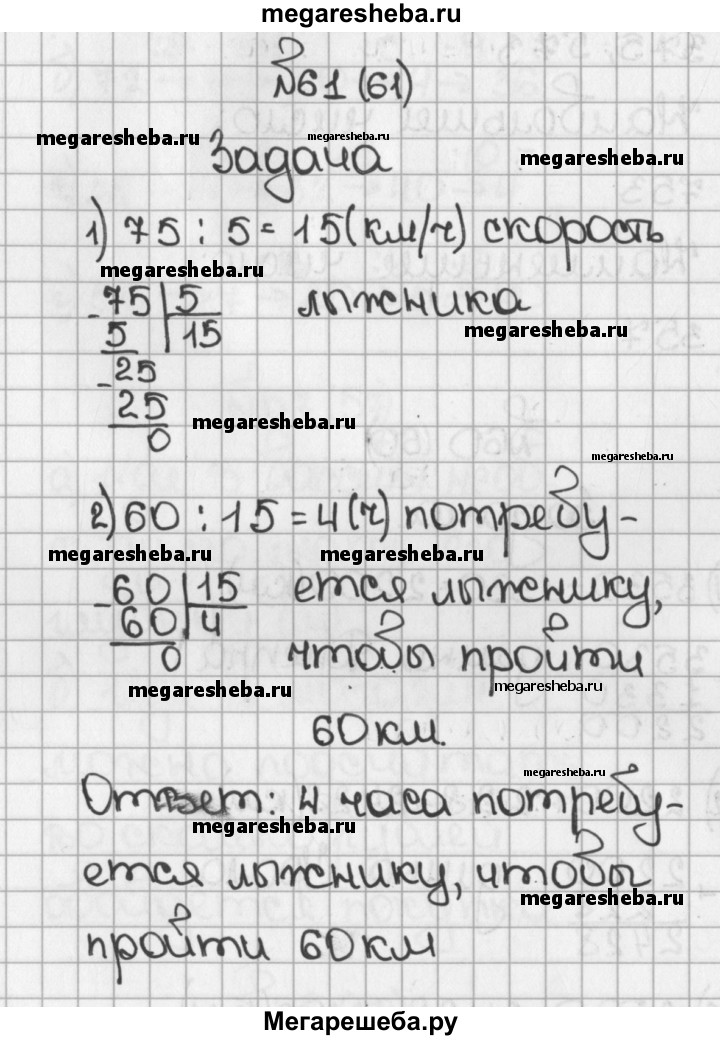 megaresheba.ru
№61 (61)
megaresheba.ru
megaresheba.ru
megaresheba.ru
Задача
1) 75 : 5 = 15 (км/ч) скорость
megaresheba.ru
лыжника
- 75 | 5
5 | 15
megaresheba.ru
- 25
25
megaresheba.ru
0
megaresheba.ru
2) 60 : 15 = 4 (ч) потребу-
megaresheba.ru
megaresheba.ru
- 60 | 15
ется лыжнику,
60 | 4
0
чтобы пройти
megaresheba.ru
megaresheba.ru
60 км.
megaresheba.ru
Ответ: 4 часа потребу-
megaresheba.ru
ется лыжнику, чтобы
megaresheba.ru
пройти 60 км
Мегарешеба.ру